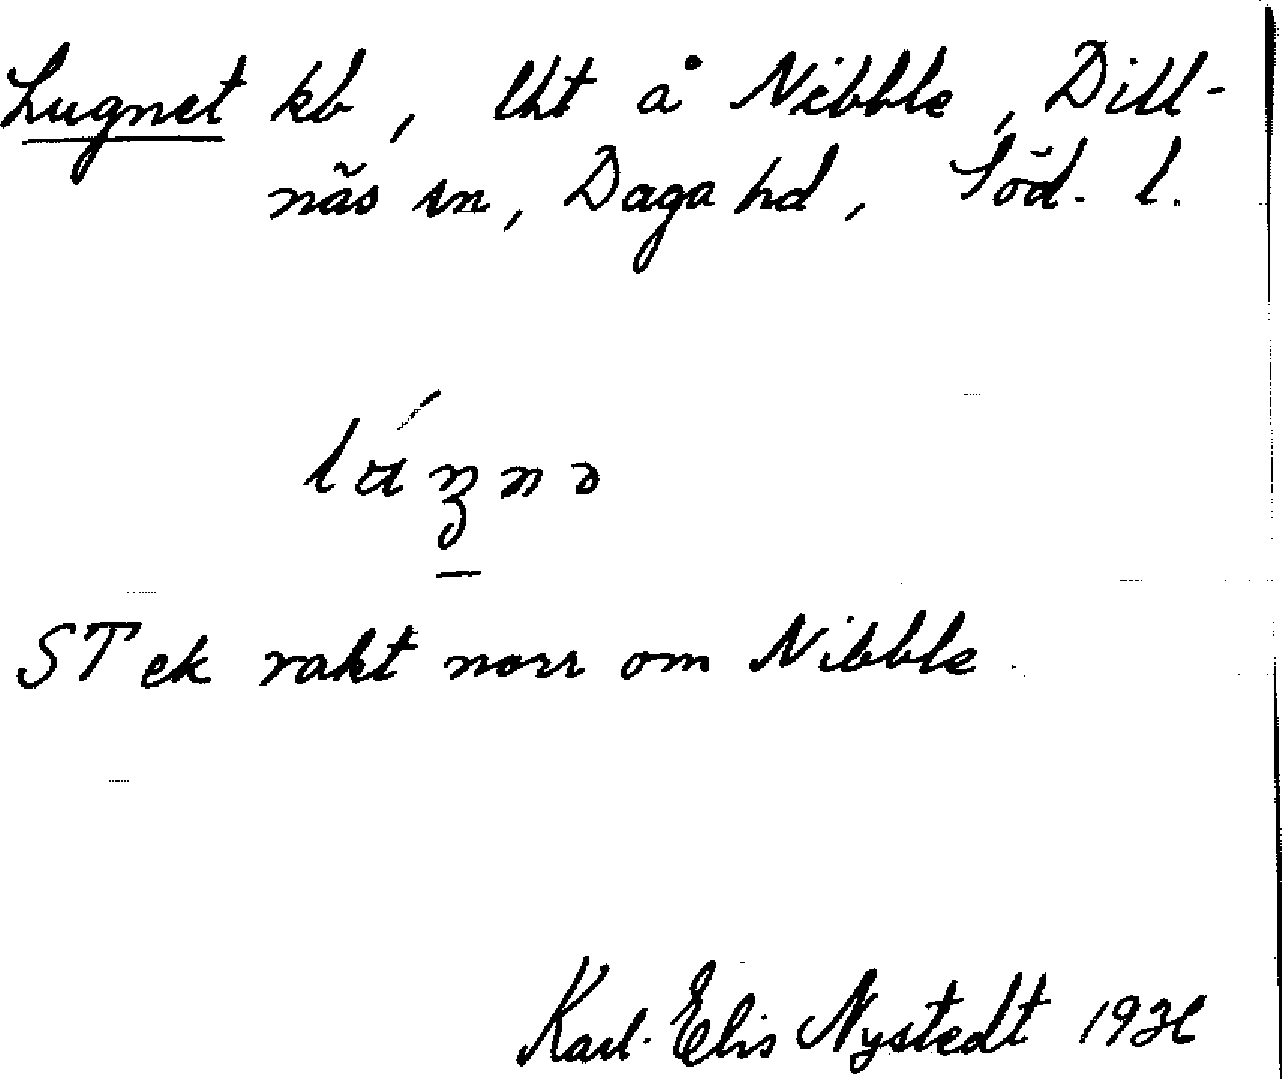 Lugnet kb, lht å Nibble, Dill-
näs sn, Daga hd, Söd. l.
STek rakt norr om Nibble.
Karl-Elis Nystedt 1936